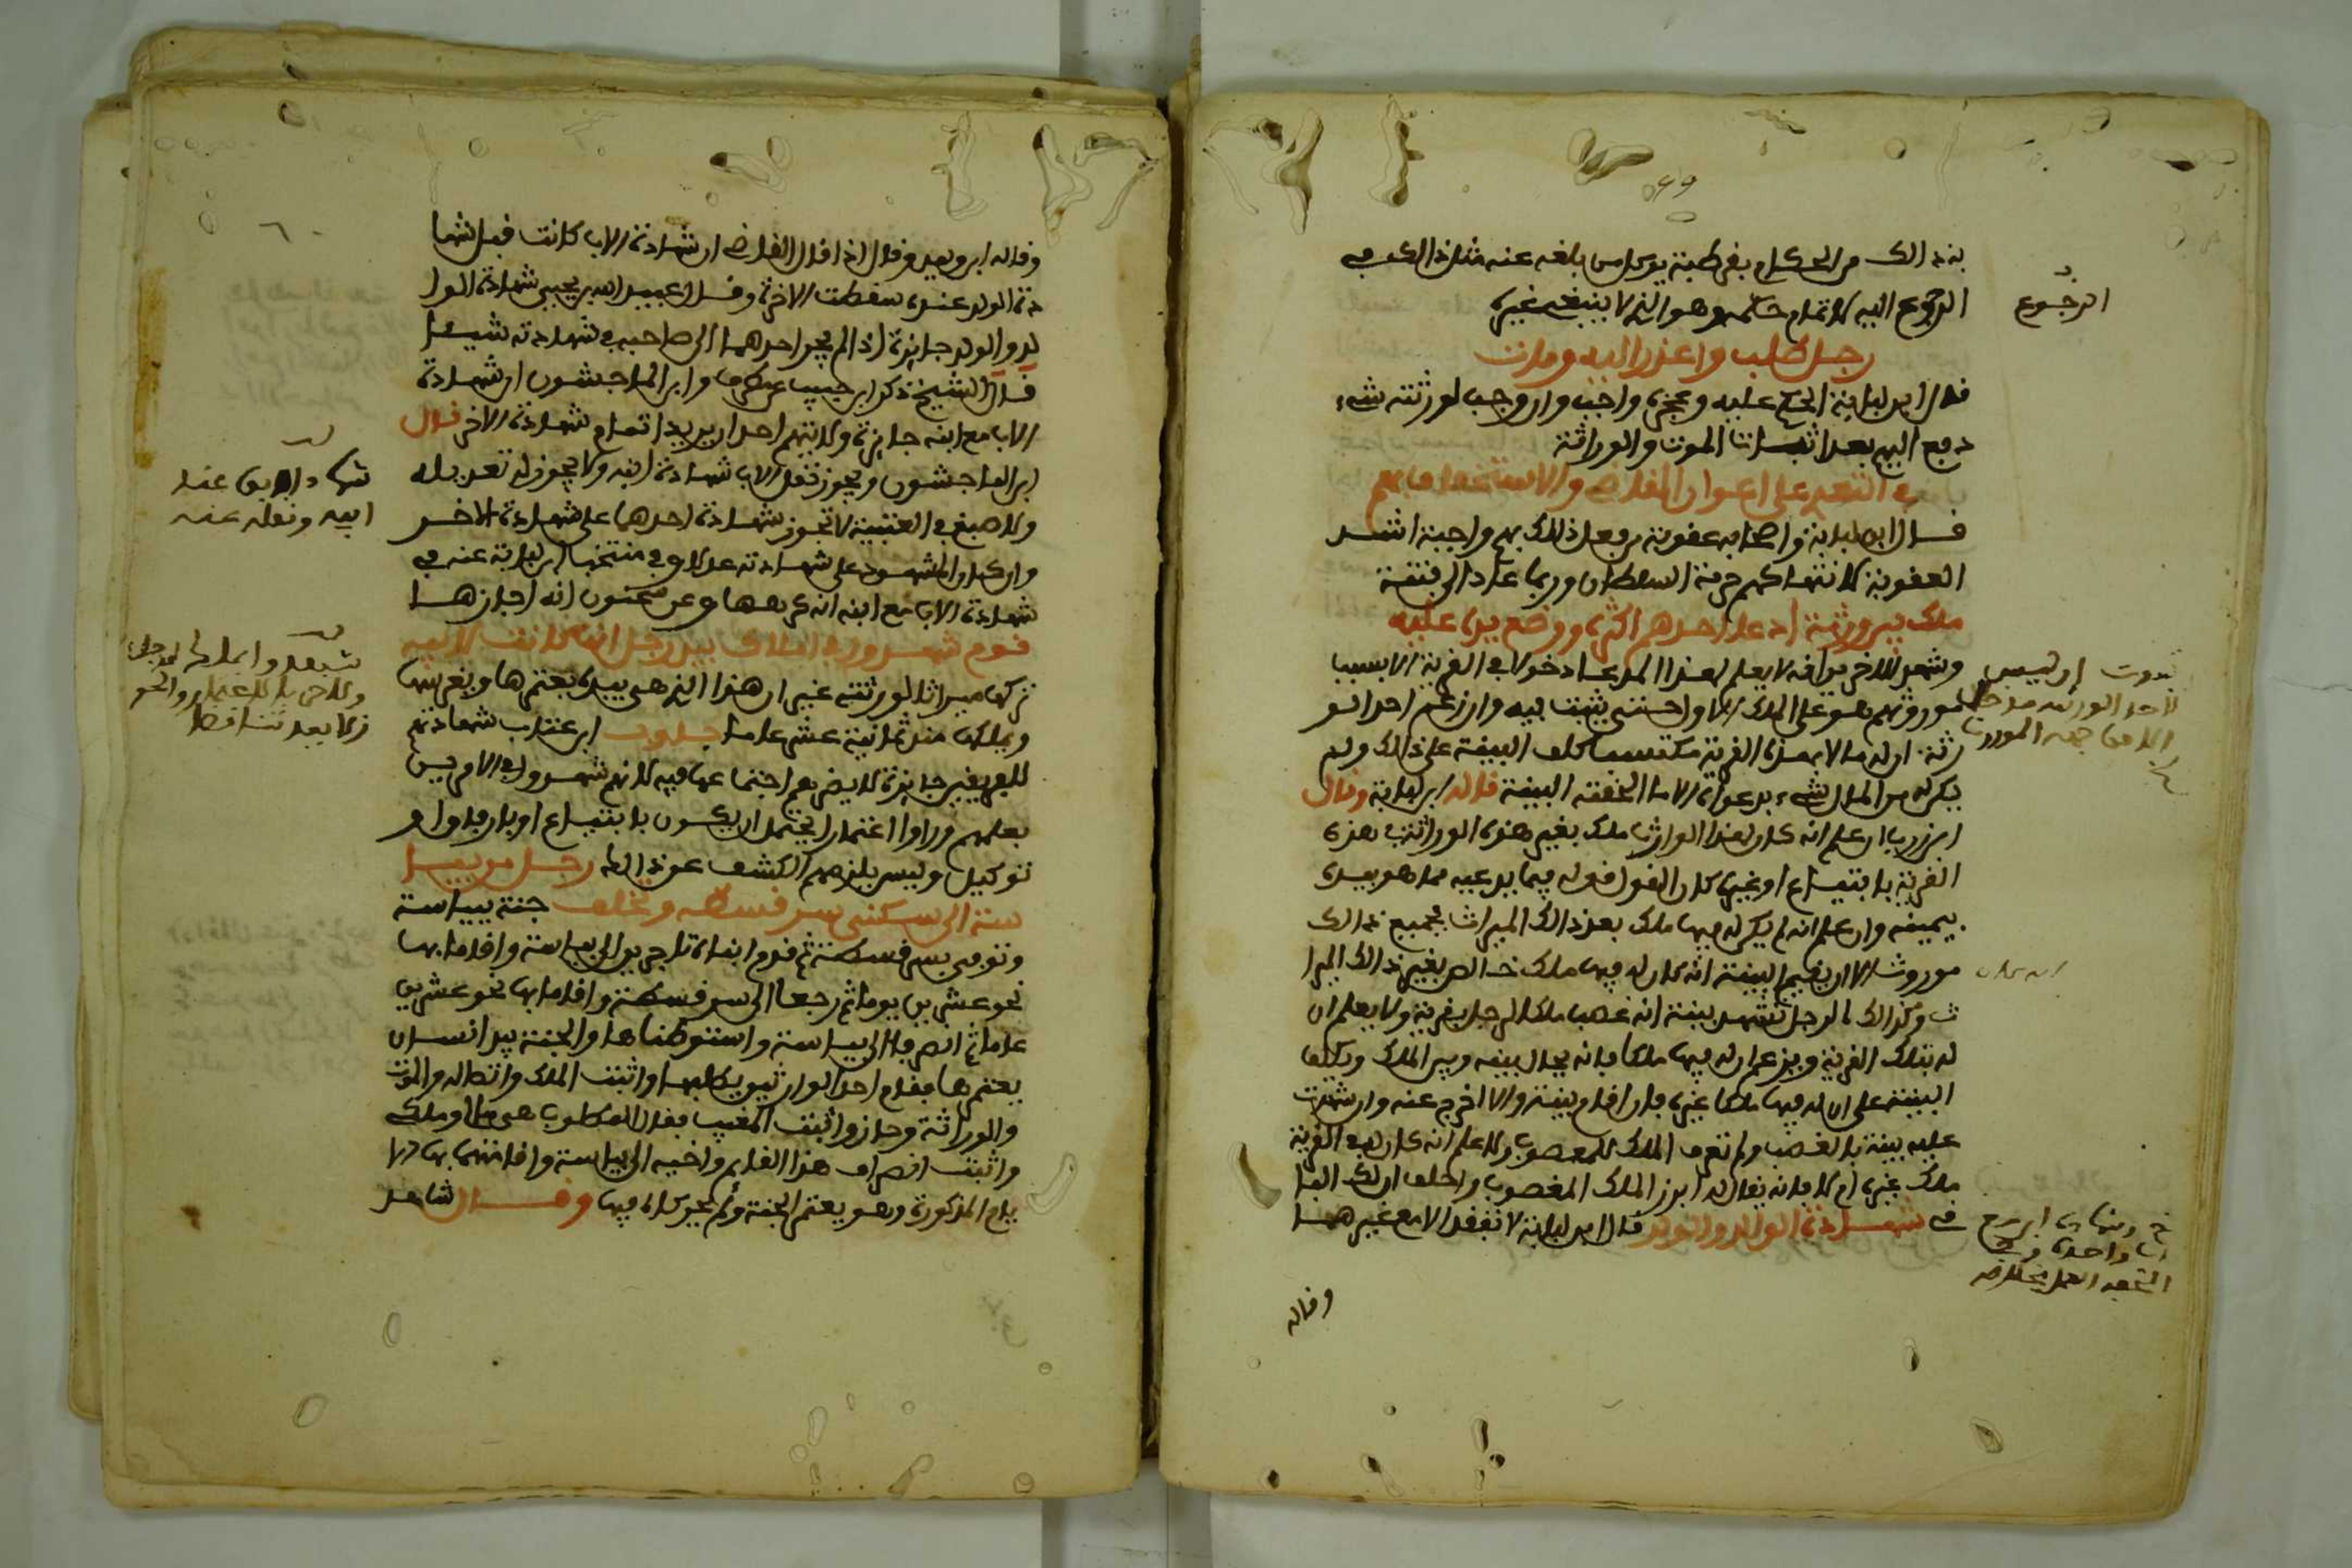 بذالك من الحكام بقرطبة يوكل من بلغه عنه مثل ذالك في
الرجوع اليه لاتمام حكمه وهو الذي لا ينبغي غيره
الرجوع
رجل طلب واعذر اليه ومات
قال ابن لبابة الحكم عليه وعجزه واجب وان وجب لورثته شيء
دفع اليهم بعد اثبات الموت والوراثة
في التعدي على اعوان القاضي والاستخفاف بهم
قال ابن لبابة واصحابه عقوبة من فعل ذلك بهم واجبة اشد
العقوبة لانتهاكهم حرمة السلطان وربما عاد الى فتنة
ملك بين ورثة ادعا احدهم اكثره ووضع يده عليه
وشهد للاخر بوانه لا يعلم لهذا المدعا دخولا في القرية الا بسبب
مورثهم هو على الملك الاول حتى يثبت فيه وان زعم احد الو
رثة ان له مالا بهذه القرية مكتسبا كلف البينة على ذالك ولم
يكن له من المال شيء بدعواه الا ما الحقته البينة قاله ابن لبابة وقال
ابن زرب ان علم انه كان لهذا الوارث ملك بغير هذه الوراثة في هذه
القرية بابتياع او غيره كان القول قوله فيما يدعيه مما هو بيده
بيمينه وان علم انه لم يكن له فيها ملك بعد ذالك الميراث فجميع ذالك
موروث الا ان يقيم البينة انه كان له فيها ملك خالص بغير ذالك الميرا
ث وكذالك الرجل تشهد بينة انه غصب ملكا لرجل بقرية ولا يعلم ان
له بتلك القرية ويزعم ان له فيها ملكا فانه يحال بينه وبين الملك ويكلف
البينة على ان له فيها ملكا غيره فان اقام بينة والا اخرج عنه وان شهدت
عليه بينة بالغصب ولم تعرف الملك المغصوب ولا علم انه كان له في القرية
ملك غيره ام لا فانه يقال له ابرز الملك المغصوب واحلف ان لك البا
في شهادة الوالد والولد قال ابن لبابة لا تنفذ الا مع غيرهما
وقاله
وقاله ابن وليد وقال اذا قال القاضي ان شهادة الاب كانت قبل شها
دة الولد عنده سقطت الاخرة وقال عبيد الله بن يحيى شهادة الوا
لد والولد جايزة اذا لم يجر احدهما الى صاحبه في شهادته شيئا
قال الشيخ ذكر ابن حبيب عن مطرف وابن الماجشون ان شهادة
الاب مع ابنه جايزة ولا يتهم احد ان يريد اتمام شهادة الاخر قال
ابن الماجشون ويجوز نقل الاب شهادة ابنه ولا يجوز له تعديله
ولاصبغ في العتبية لا تجوز شهادة احدهما على شهادة الاخر
وان كان المشهود على شهادته عدلا وفي منتخب ابن لبابة عنه في
شهادة الاب مع ابنه انه كرهها وعن سحنون انه اجازها
قوم شهدوا في املاك بيد رجل انها كانت لابيه
تركها ميراثا لورثته غير ان هذا الذي هي بيده يعتمرها ويغرسها
ويملكها منذ ثمانية عشر عاما جاوب ابن عتاب شهادتهم
للفريقين جايزة لا يضرهم اجتماعها فيه لانهم شهدوا في الامرين
بعلمهم وراوا اعتمارا يحتمل ان يكون بابتياع او بارفاق او
توكيل وليس يلزمهم الكشف عن ذالك رجل من بيا
سة الى سكنى سرقسطة وتخلف جنة ببياسة
وتوفي بسرقسطة ثم قدم ابناه تاجرين الى بياسة واقاما بها
نحو عشرين يوما ثم رجعا الى سرقسطة واقاما بها نحو عشرين
عاما ثم انصرفا الى بياسة واستوطناها والجنة بيد انسان
يعتمرها فقام احد الوارثين يطلبها واثبت الملك واتصاله والموت
والوراثة وحاز واثبت المغيب فقال المطلوب هي مالي وملكي
واثبت انصراف هذا القايم واخيه الى بياسة واقامتهما بها الا
يام المذكورة وهو يعتمر الجنة ولم يجر كلام فيها وقال شاهد